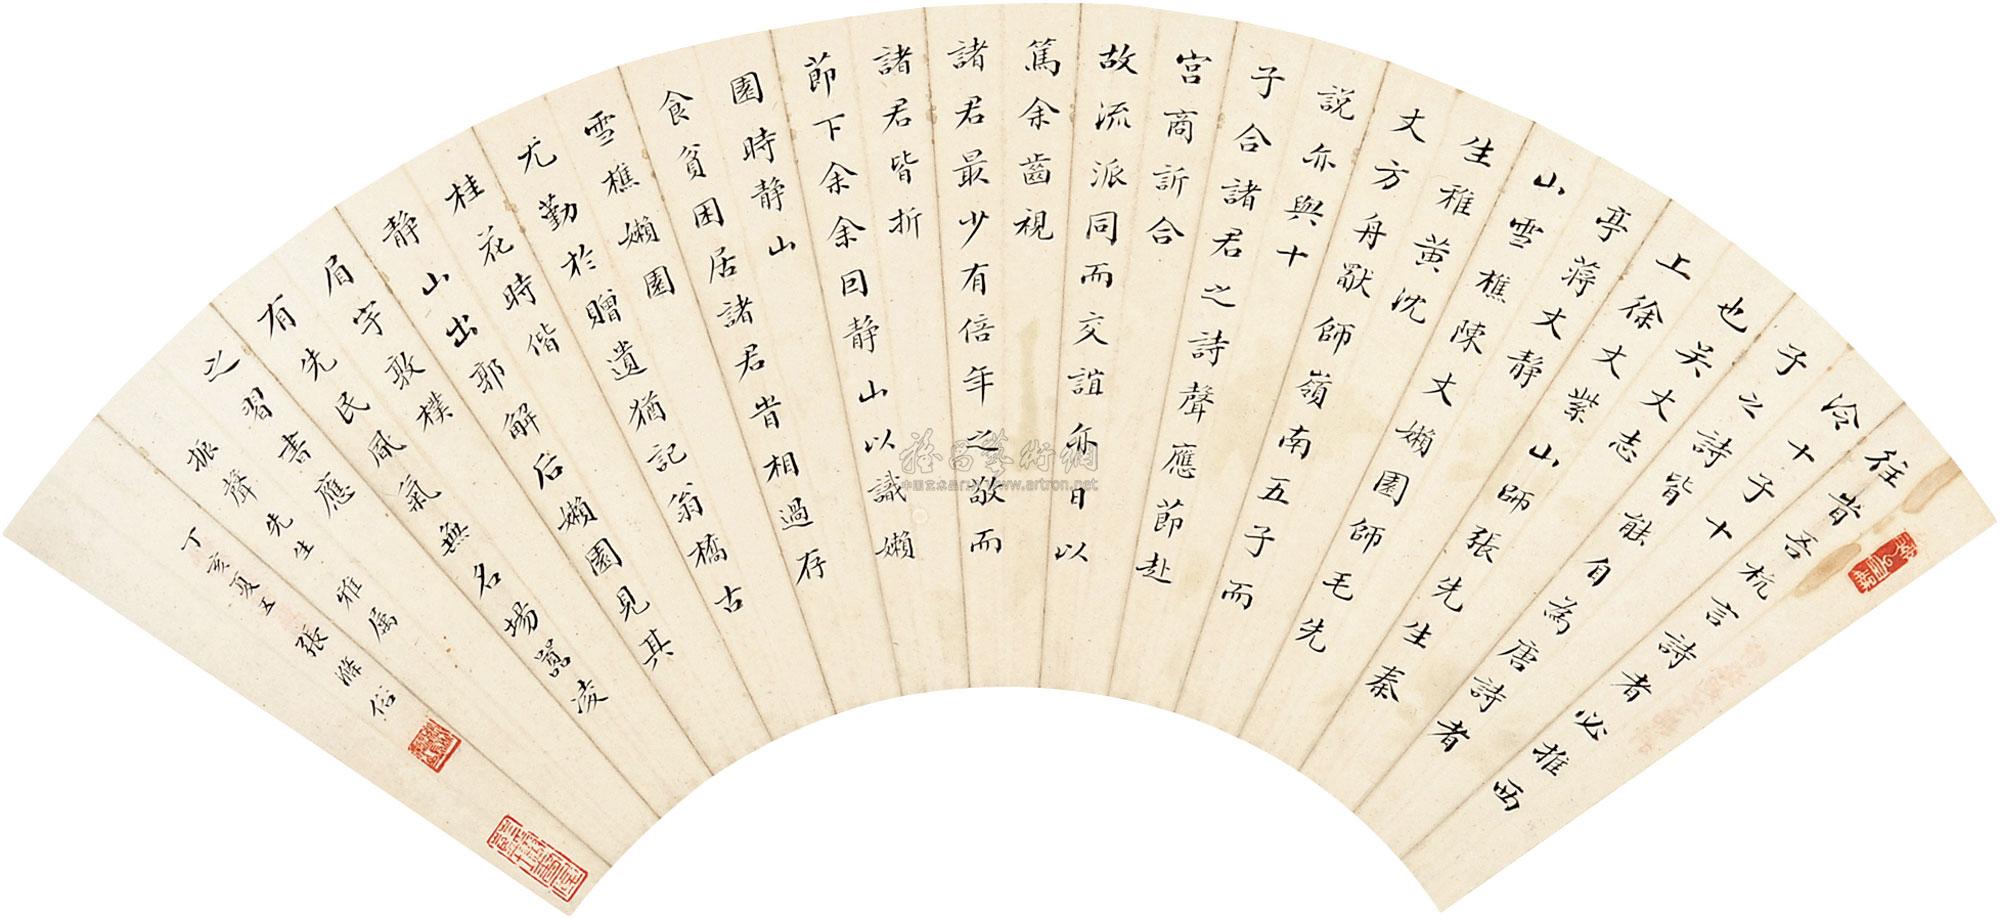 往昔吾杭言詩者必推西
泠十子十
子之詩皆能自為唐詩者
也吳丈志
上徐丈紫山師張先生秦
亭蔣丈靜
山雪樵陳丈嬾園師毛先
生稚黃沈
丈方舟猒師嶺南五子而
説亦與十
子合諸君之詩聲應節赴
宮商訢合
故流派同而交誼亦日以
篤余齒視
諸君最少有倍年之敬而
諸君皆折
節下余余囙靜山以識嬾
園時靜山
食貧困居諸君昔相過存
雪樵嬾園
尤勤於贈遺猶記翁橋古
桂花時偕
靜山出郭解后嬾園見其
眉宇敦樸
有先民風氣無名場囂凌
之習書應
振聲先生雅属
丁亥夏五 張滌俗